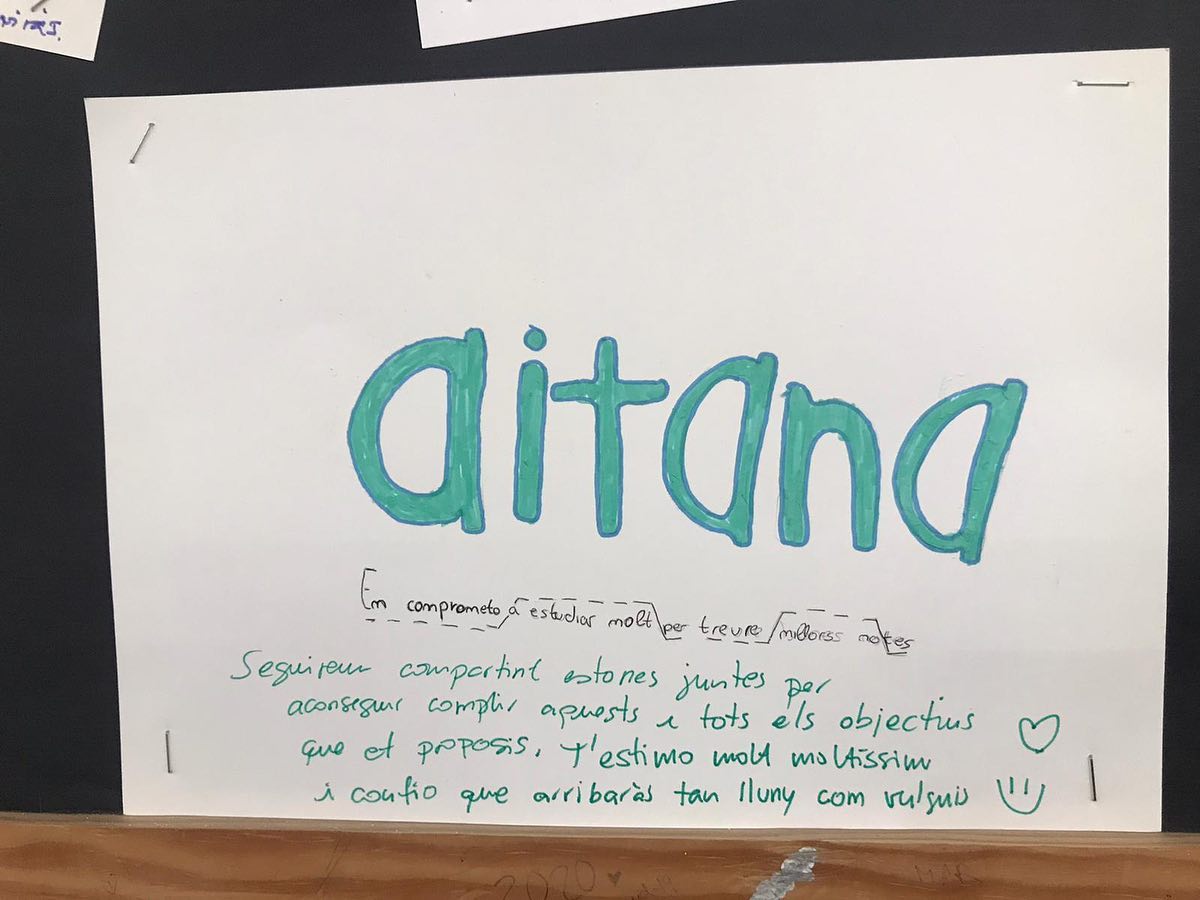 viràs.
aitana
Em comprometo a estudiar molt per treure millorss notes
Seguirem compartint estones juntes per
aconseguir complir aquests i tots els objectius
que et proposis. T'estimo molt moltíssim
i confio que arribaràs tan lluny com vulguis
2020